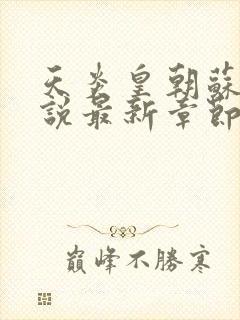 天炎皇朝蘇
說最新章節
巔峰不勝寒